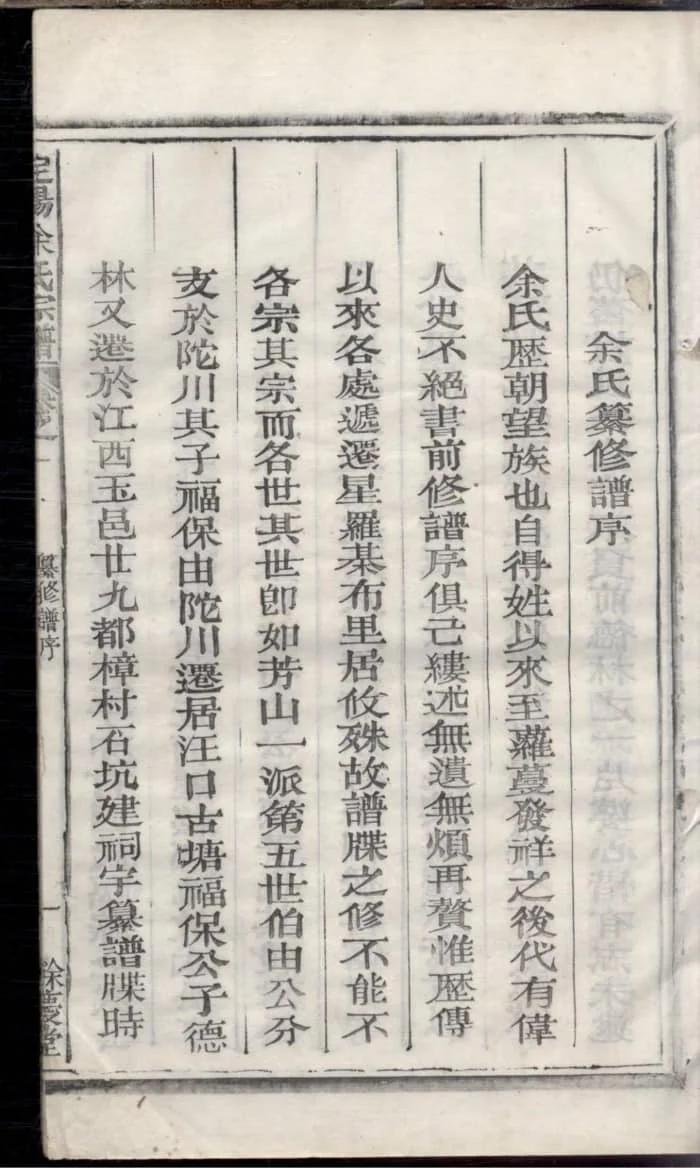 余氏纂修譜序
余氏歷朝望族也自得姓以來至蘿蔓發祥之後代有偉
人史不絕書前修譜序俱已縷述無遺無煩再贅惟歷傳
以來各處遞遷星羅棊布里居攸殊故譜牒之修不能不
各宗其宗而各世其世卽如芳山一派第五世伯由公分
支於陀川其子福保由陀川遷居汪口古塘福保公子德
林又遷於江西玉邑廿九都樟村石坑建祠宇纂譜牒時
陽余氏宗譜
纂修譜序
一
餘慶堂